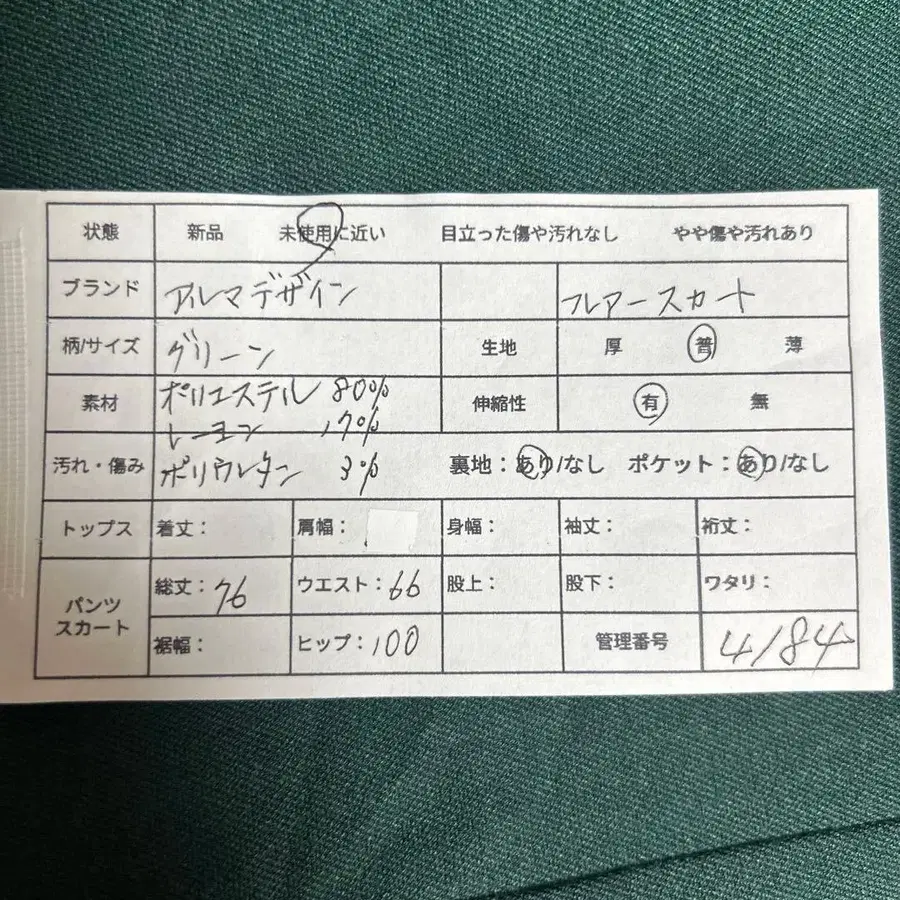 状態 新品 未使用に近い 目立った傷や汚れなし やや傷や汚れあり
ブランド アルマデザイン フレアースカート
柄/サイズ グリーン 生地 厚 普 薄
素材 ポリエステル 80% 伸縮性 有 無
レーヨン 17%
汚れ・傷み ポリウレタン 3% 裏地：あり/なし ポケット：あり/なし
トップス 着丈： 肩幅： 身幅： 袖丈： 裄丈：
パンツ スカート 総丈：76 ウエスト：66 股上： 股下： ワタリ：
裾幅： ヒップ：100 管理番号 4184